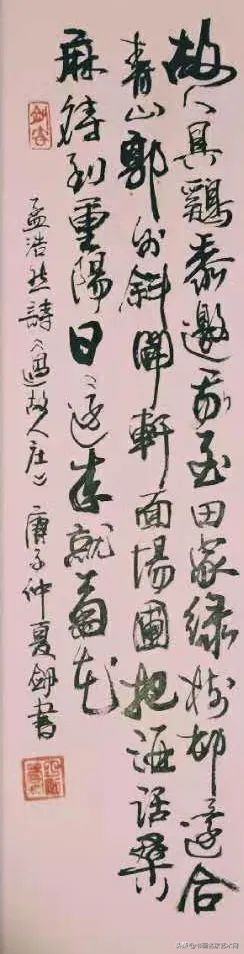 故人具鷄黍邀我至田家緑樹邨邊合
青山郭外斜開軒面場圃把酒話桑
麻待到重陽日還来就菊花
孟浩然詩《過故人庄》 庚子仲夏劍書